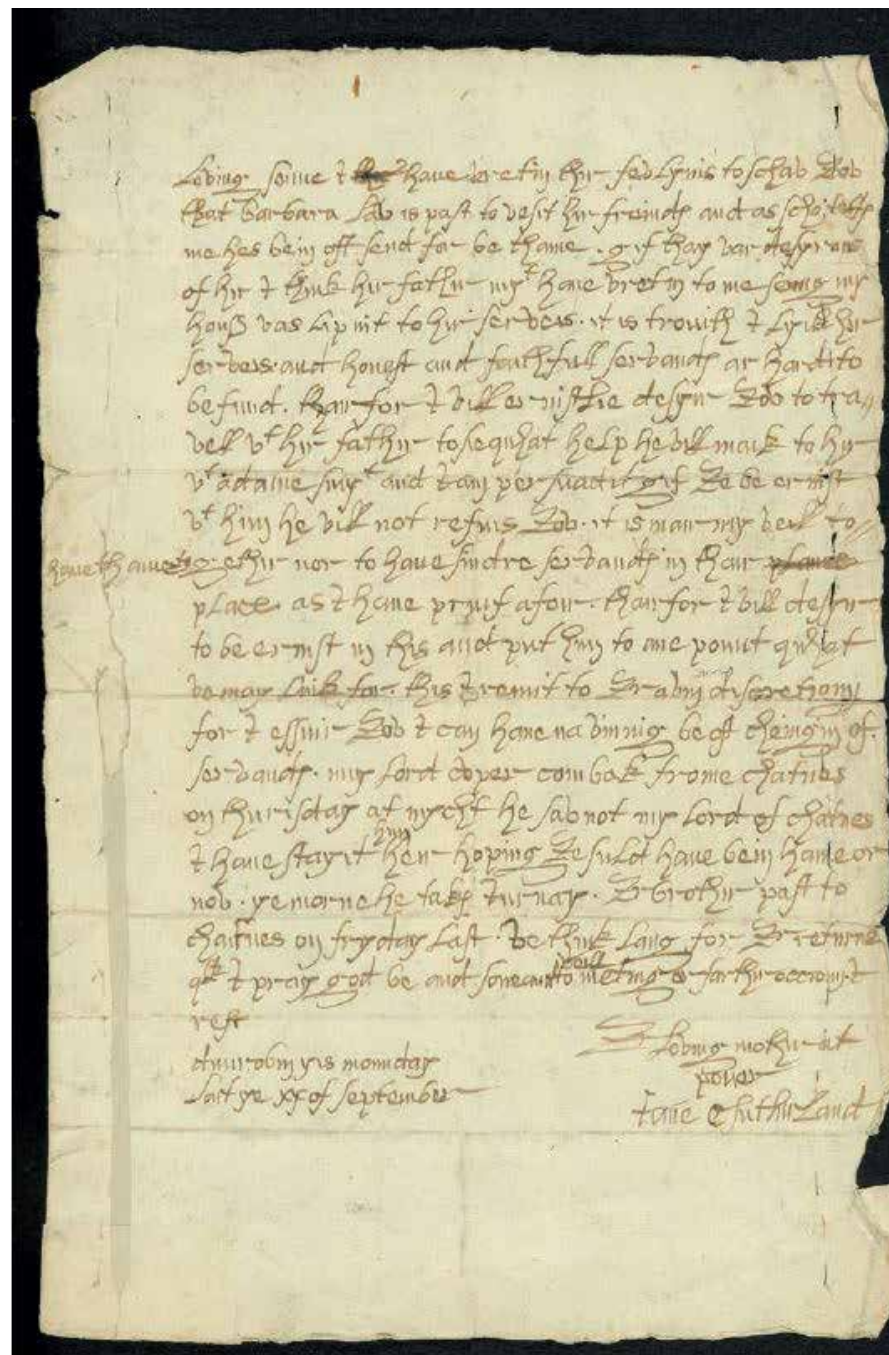 Loving sonne I have vretin thir few lynis to schaw yow
that barbara Law is past to vesit hir freindis and as scho tellis
me hes bein oft send for be thame. gif thay var desyrous
of hir I think hir fathir myt have vretin to me seing my
houss vas lipnit to hir serveis. it is trouith I lyik hir
serveis. and honest and faithfull servandis ar hard to
be fund. thairfor I vill ernistlie desyir yow to tra
vell vt hir fathir to se quhat help he vill maik to hir
vt adame smyt and I am persuadit gif ye be ernist
vt him he vill not refuis yow. it is mair my veill to
have thame togethir nor to have sindre servandis in thair
place. as I have pruif afoir. thairfor I vill desyir
to be ernist in this and put him to ane point quhat
ve may luik for. this I remit to yr awin discretioun
for I assuir yow I can have na vinnig be oft cheingin of
servandis. my lord coper com bak frome chatnes
on thurisday at nycht he saw not my lord of chatnes
I have stayit him heir hoping ye suld have bein hame or
now. ye morne he takis Iurnay. yr brothir past to
chaitnes on fryday last. ve think lang for yr returne
qlk I pray god be and soneour meting or farthir occcounpt
rest
yr loving mothir at
dunrobin yis mononday
power
last ye xx of september
Iane C suthirland